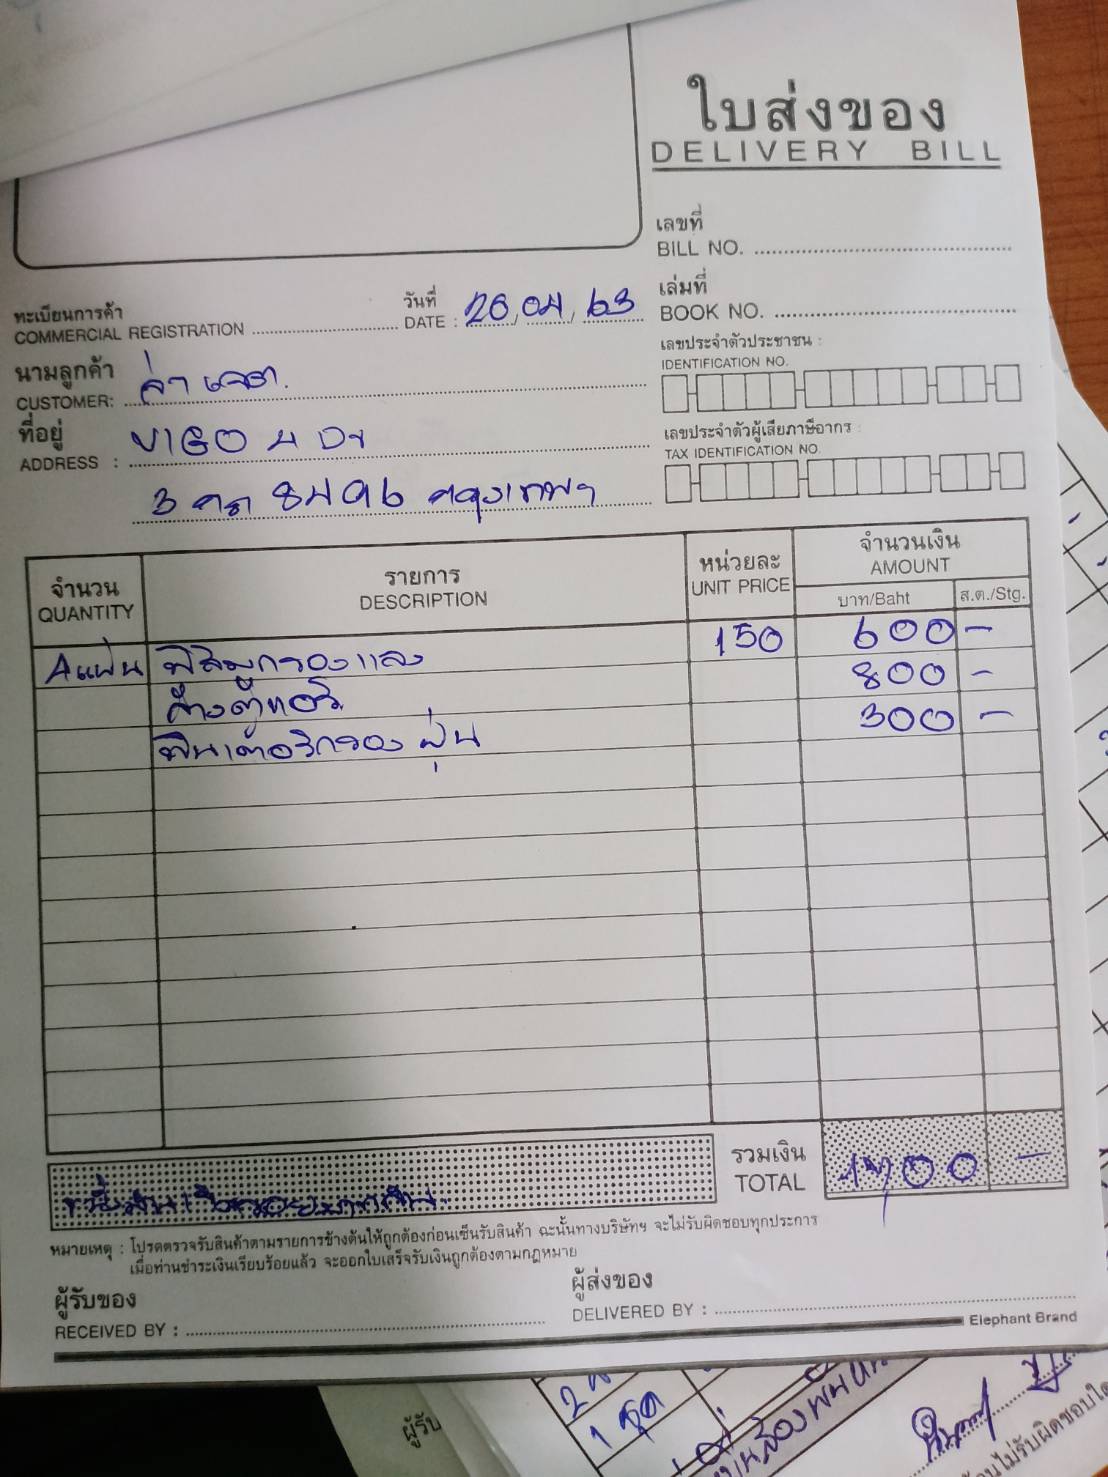 ใบส่งของ
DELIVERY BILL
เลขที่
BILL NO.
เล่มที่
BOOK NO.
ทะเบียนการค้า
COMMERCIAL REGISTRATION
วันที่
DATE : 26, 04, 63
นามลูกค้า
CUSTOMER:
ที่อยู่
ADDRESS : VIGO 4 Dr
3 กต 8496 กรุงเทพฯ
เลขประจำตัวประชาชน :
IDENTIFICATION NO.
เลขประจำตัวผู้เสียภาษีอากร :
TAX IDENTIFICATION NO.
จำนวน
QUANTITY
รายการ
DESCRIPTION
หน่วยละ
UNIT PRICE
จำนวนเงิน
AMOUNT
บาท/Baht
ส.ต./Stg.
4 แผ่น ฟิล์มกรองแสง 150 600 -
ล้างตู้แอร์ 800 -
ฟิลเตอร์กรองฝุ่น 300 -
รวมเงิน
TOTAL
1700 -
หมายเหตุ : โปรดตรวจรับสินค้าตามรายการข้างต้นให้ถูกต้องก่อนเซ็นรับสินค้า ฉะนั้นทางบริษัทฯ จะไม่รับผิดชอบทุกประการ
เมื่อท่านชำระเงินเรียบร้อยแล้ว จะออกใบเสร็จรับเงินถูกต้องตามกฎหมาย
ผู้รับของ
RECEIVED BY :
ผู้ส่งของ
DELIVERED BY :
Elephant Brand
ผู้รับ
1 ชุด